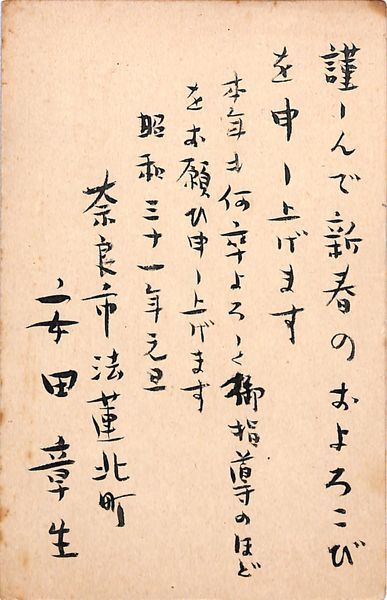 謹しんで新春のおよろこび
を申し上げます
本年も何卒よろしく御指導のほど
をお願ひ申し上げます
昭和三十一年元旦
奈良市法蓮北町
安田章生